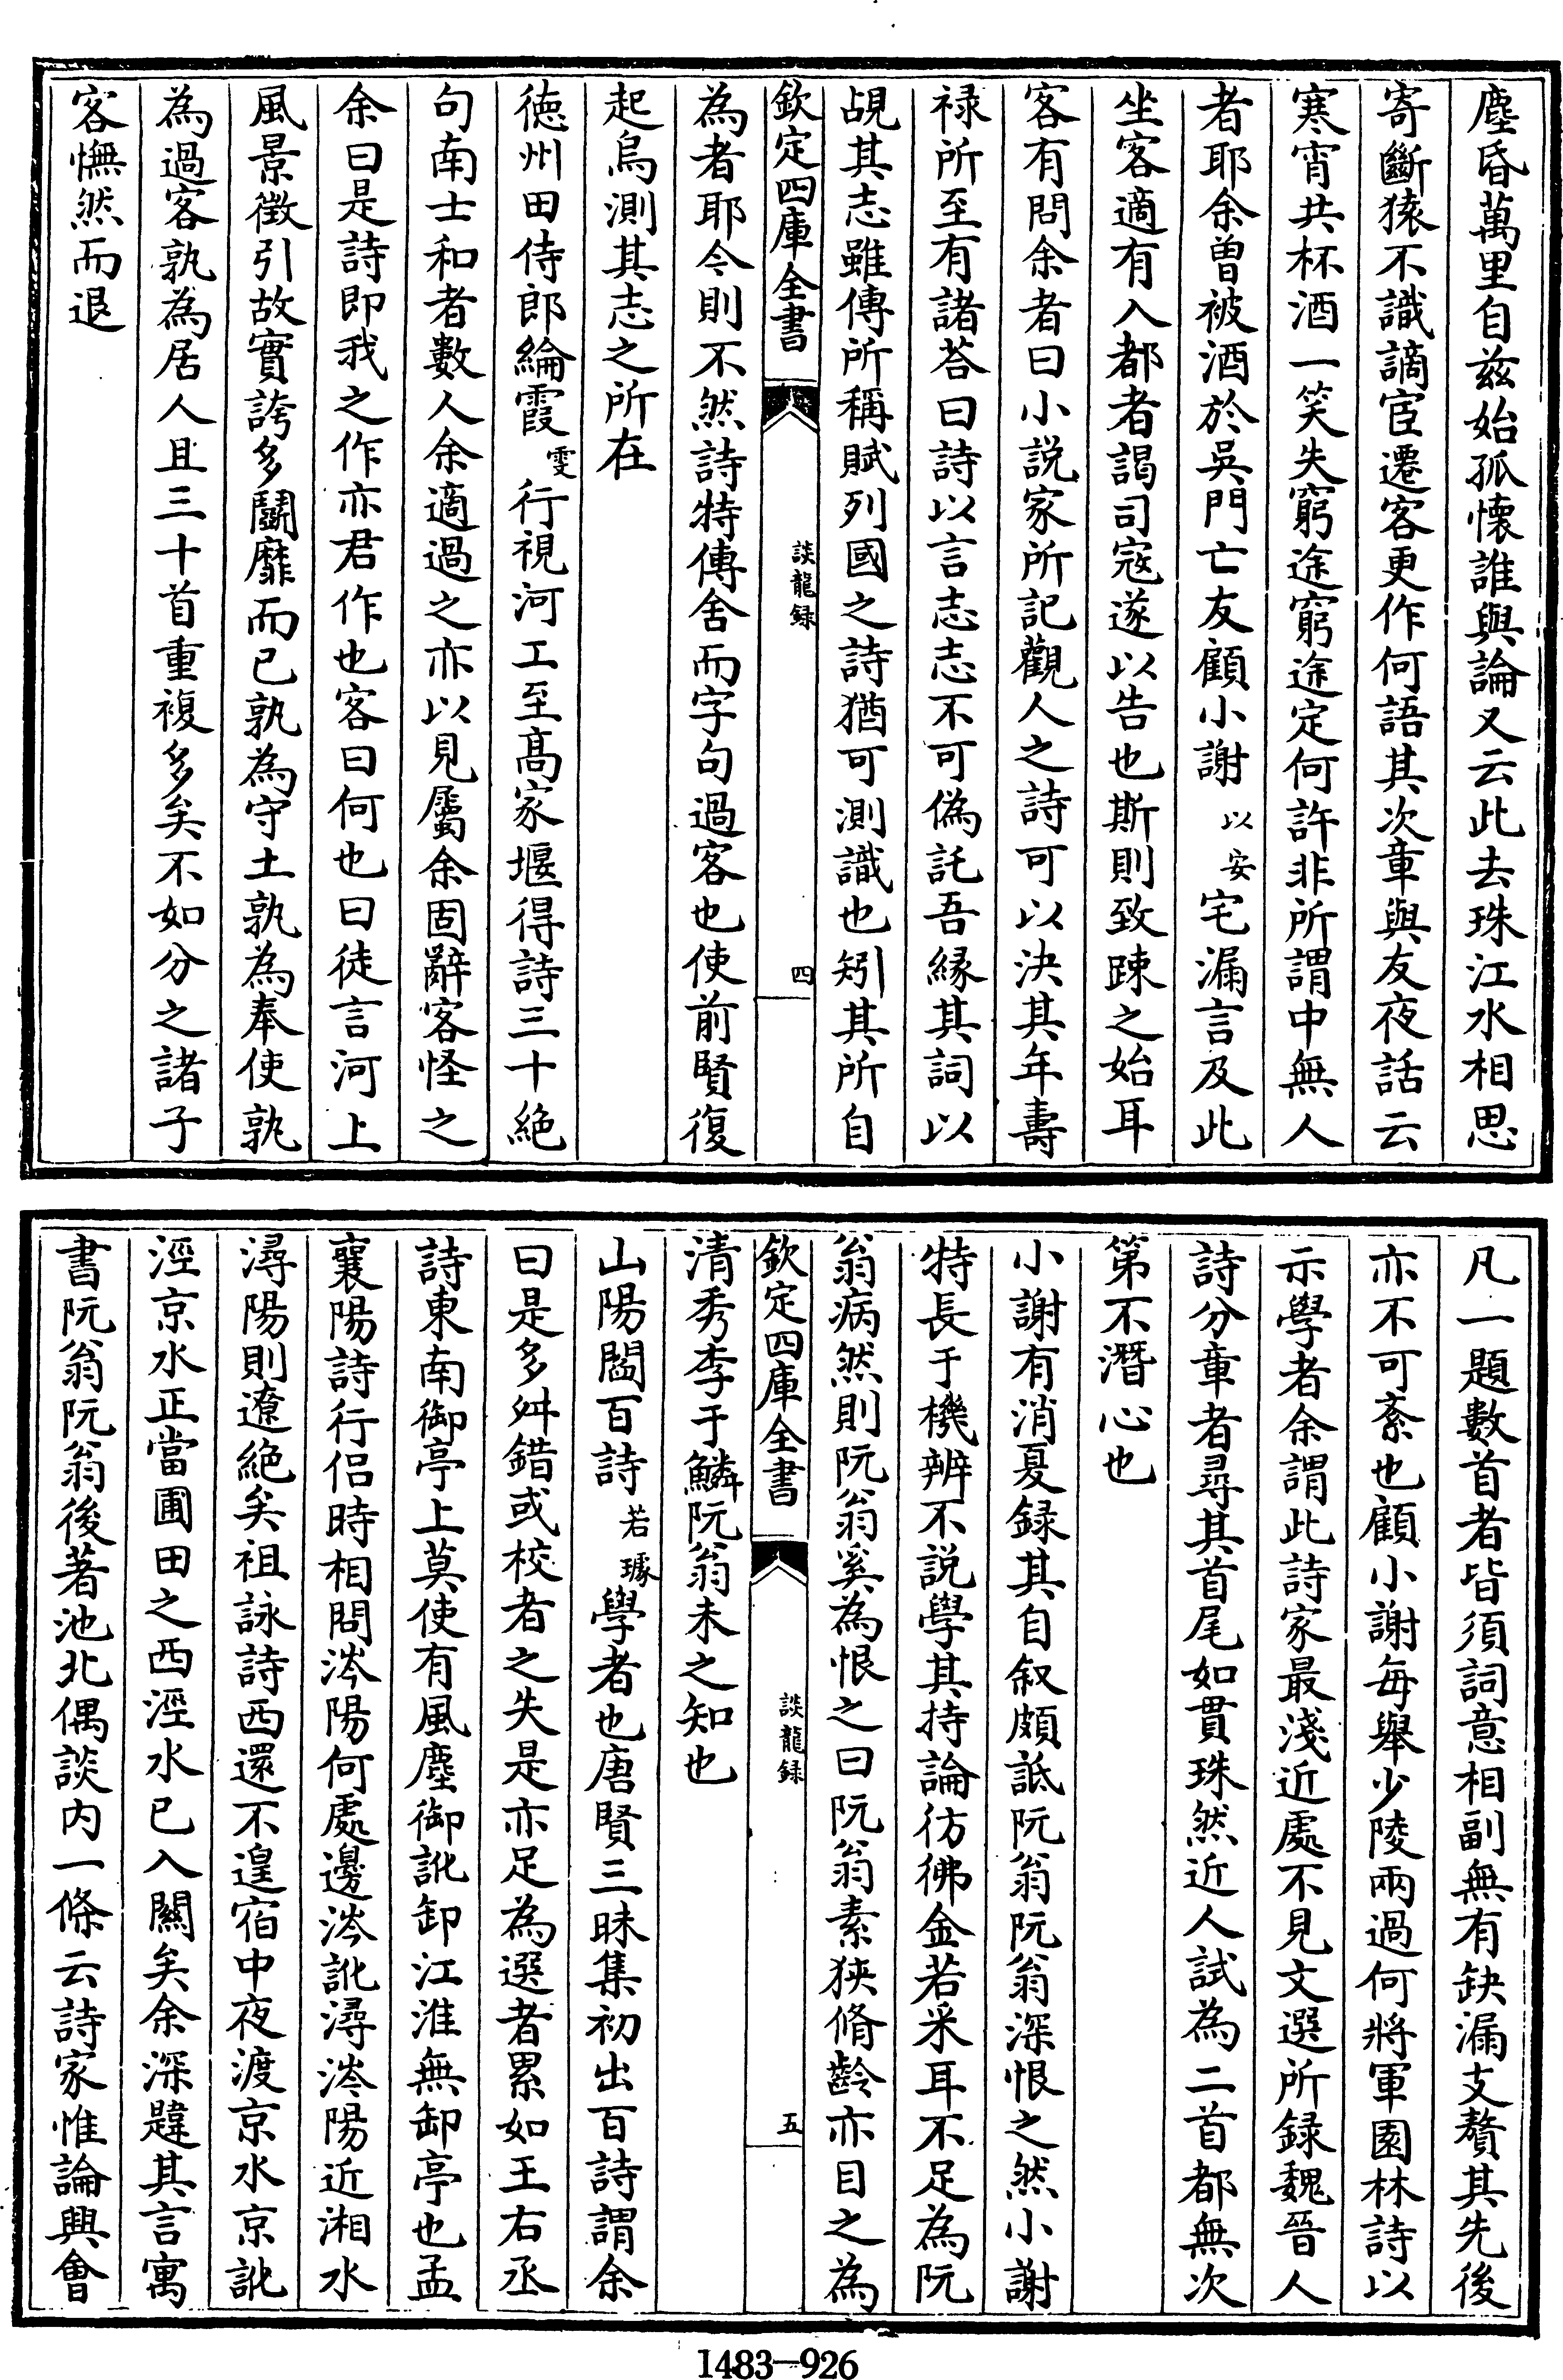 塵昏萬里自兹始孤懷誰與論又云此去珠江水相思
寄斷猿不識謫宦遷客更作何語其次章與友夜話云
寒宵共杯酒一笑失窮途窮途定何許非所謂中無人
者耶余曽被酒於吳門亡友顧小謝以安宅漏言及此
坐客適有入都者謁司寇遂以告也斯則致疎之始耳
客有問余者曰小説家所記觀人之詩可以决其年壽
禄所至有諸荅曰詩以言志志不可偽託吾縁其詞以
覘其志雖傳所稱賦列國之詩猶可測識也矧其所自
欽定四庫全書
談龍録
四
為者耶今則不然詩特傳舍而字句過客也使前賢復
起烏測其志之所在
徳州田侍郎綸霞雯行視河工至髙家堰得詩三十絶
句南士和者數人余適過之亦以見屬余固辭客怪之
余曰是詩即我之作亦君作也客曰何也曰徒言河上
風景徴引故實誇多鬭靡而已孰為守土孰為奉使孰
為過客孰為居人且三十首重複多矣不如分之諸子
客憮然而退
凡一題數首者皆須詞意相副無有缺漏支贅其先後
亦不可紊也顧小謝每舉少陵兩過何將軍園林詩以
示學者余謂此詩家最淺近處不見文選所録魏晉人
詩分章者尋其首尾如貫珠然近人試為二首都無次
第不潛心也
小謝有消夏録其自叙頗詆阮翁阮翁深恨之然小謝
特長于機辨不説學其持論彷彿金若采耳不足為阮
翁病然則阮翁奚為恨之曰阮翁素狹脩齡亦目之為
欽定四庫全書
談龍録
五
清秀李于鱗阮翁未之知也
山陽閻百詩若璩學者也唐賢三昧集初出百詩謂余
曰是多舛錯或校者之失是亦足為選者累如王右丞
詩東南御亭上莫使有風塵御訛卸江淮無卸亭也孟
襄陽詩行侣時相問涔陽何處邊涔訛潯涔陽近湘水
潯陽則遼絶矣祖詠詩西還不遑宿中夜渡京水京訛
涇京水正當圃田之西涇水已入關矣余深韙其言寓
書阮翁阮翁後著池北偶談内一條云詩家惟論興會
1483—926